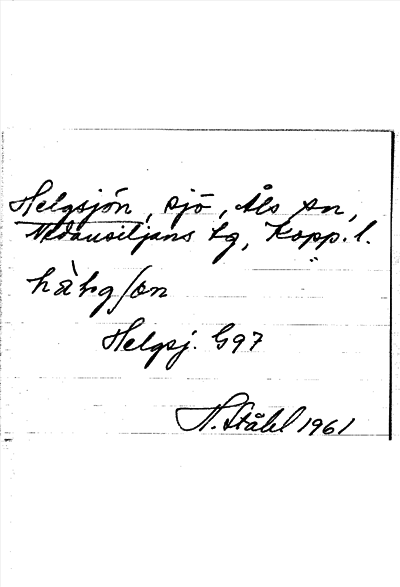 Helgsjön, sjö, Åls sn,
Nedansiljans tg, Kopp. l.
hàlgʃön
Helgsj. G97
H. Ståhl 1961